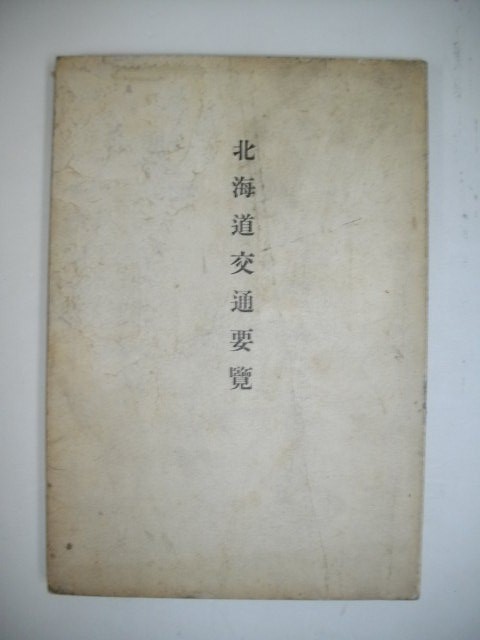 北海道交通要覽